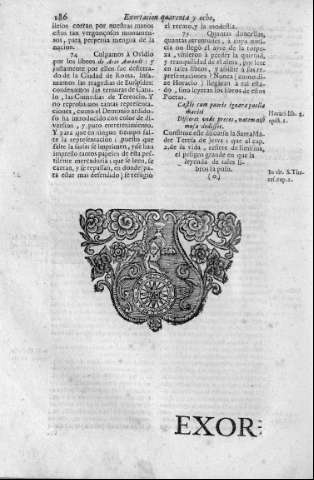 186 Exortacion quarenta y ocho,
libros corran por nuestras manos
estos tan vergonçosos monumen-
tos, para perpetua mengua de la
nacion.
74 Culpamos à Ovidio
por los libros de Arte Amandi: y
justamente por ellos fue desterra-
do de la Ciudad de Roma. Infa-
mamos las tragedias de Euripides:
condenamos las ternuras de Catu-
lo, las Comedias de Terencio. Y
no reprobamos tantas representa-
ciones, como el Demonio astuto
ha introducido con color de di-
version, y puro entretenimiento.
Y para que en ningun tiempo fal-
te la representacion, puesto que
salte la suela se imprimen, y se han
impresso tantos papeles de esta pes-
tilente mercaduria: que se leen, se
cantan, y se repassan, en donde pa-
ra estar mas defendido, se refugiò
el recato, y la modestia.
75 Quantas donzellas,
quantas
cia no llegó el ayre de la torpe-
za, vinieron à perder la quietud,
y tranquilidad de el alma, por leer
en tales libros, y assistir à
representaciones? Nunca, como di-
ze Horacio, llegaran à tal es-
tado, sino leyeran los libros de estos
Poetas.
Castis cum pueris ignara puella
mariti
Disceret unde preces, vatem ni
musa dedisset.
Horat. lib. 2.
epist. 1.
Confirme este discurso la Santa Ma-
dre Teresa de Jesus: que al cap.
2. de la vida, refiere de si misma,
el peligro grande en que la
leyenda de tales li-
bros la puso.
In vit. S. The-
res. cap. 2.
(o.)
EXOR-